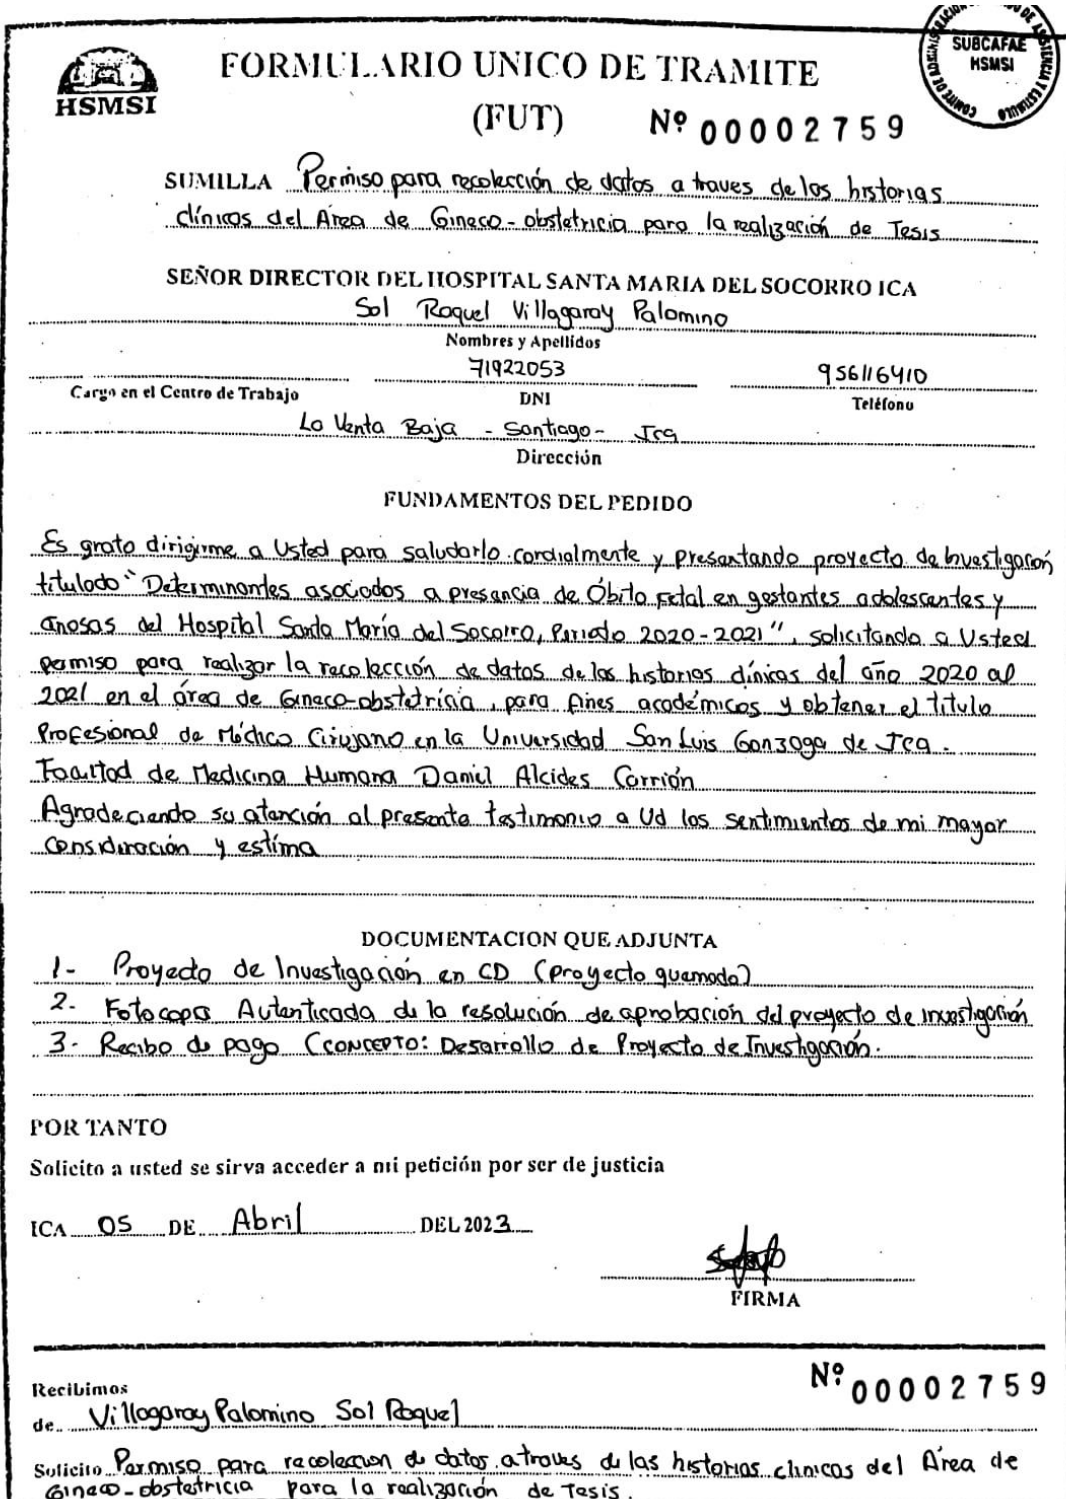 SUBCAFAE
HSMSI
HSMSI
FORMULARIO UNICO DE TRAMITE
(FUT) Nº 00002759
SUMILLA Permiso para recolección de datos a traves de las historias
clínicas del Área de Gineco-obstetricia para la realización de Tesis
SEÑOR DIRECTOR DEL HOSPITAL SANTA MARIA DEL SOCORRO ICA
Sol Raquel Villagaray Palomino
Nombres y Apellidos
71922053 956116410
Cargo en el Centro de Trabajo DNI Teléfono
La Venta Baja - Santiago - Ica
Dirección
FUNDAMENTOS DEL PEDIDO
Es grato dirigirme a Usted para saludarlo cordialmente y presentando proyecto de Investigación
titulado "Determinantes asociados a presencia de Óbito fetal en gestantes adolescentes y
añosas del Hospital Santa María del Socorro, Periodo 2020-2021", solicitando a Usted
permiso para realizar la recolección de datos de las historias clínicas del año 2020 al
2021 en el área de Gineco-obstetricia, para fines académicos y obtener el título
Profesional de Médico Cirujano en la Universidad San Luis Gonzaga de Ica.
Facultad de Medicina Humana Daniel Alcides Carrión
Agradeciendo su atención al presente testimonio a Ud los sentimientos de mi mayor
consideración y estima
DOCUMENTACION QUE ADJUNTA
1- Proyecto de Investigación en CD (proyecto quemado)
2- Fotocopia Autenticada de la resolución de aprobación del proyecto de investigación
3- Recibo de pago (CONCEPTO: Desarrollo de Proyecto de Investigación.
POR TANTO
Solicito a usted se sirva acceder a mi petición por ser de justicia
ICA 05 DE Abril DEL 2023
FIRMA
Nº 00002759
Recibimos
de Villagaray Palomino Sol Raquel
Solicito Permiso para recoleccion de datos a traves de las historias clinicas del Área de
Gineco-obstetricia para la realización de Tesis.